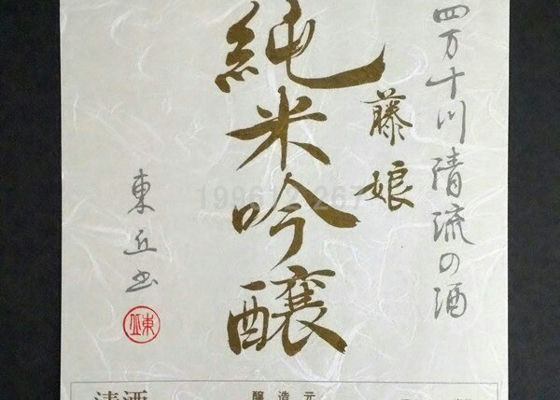 四万十川清流の酒
藤娘
純米吟醸
東丘書
東丘
清酒
醸造元